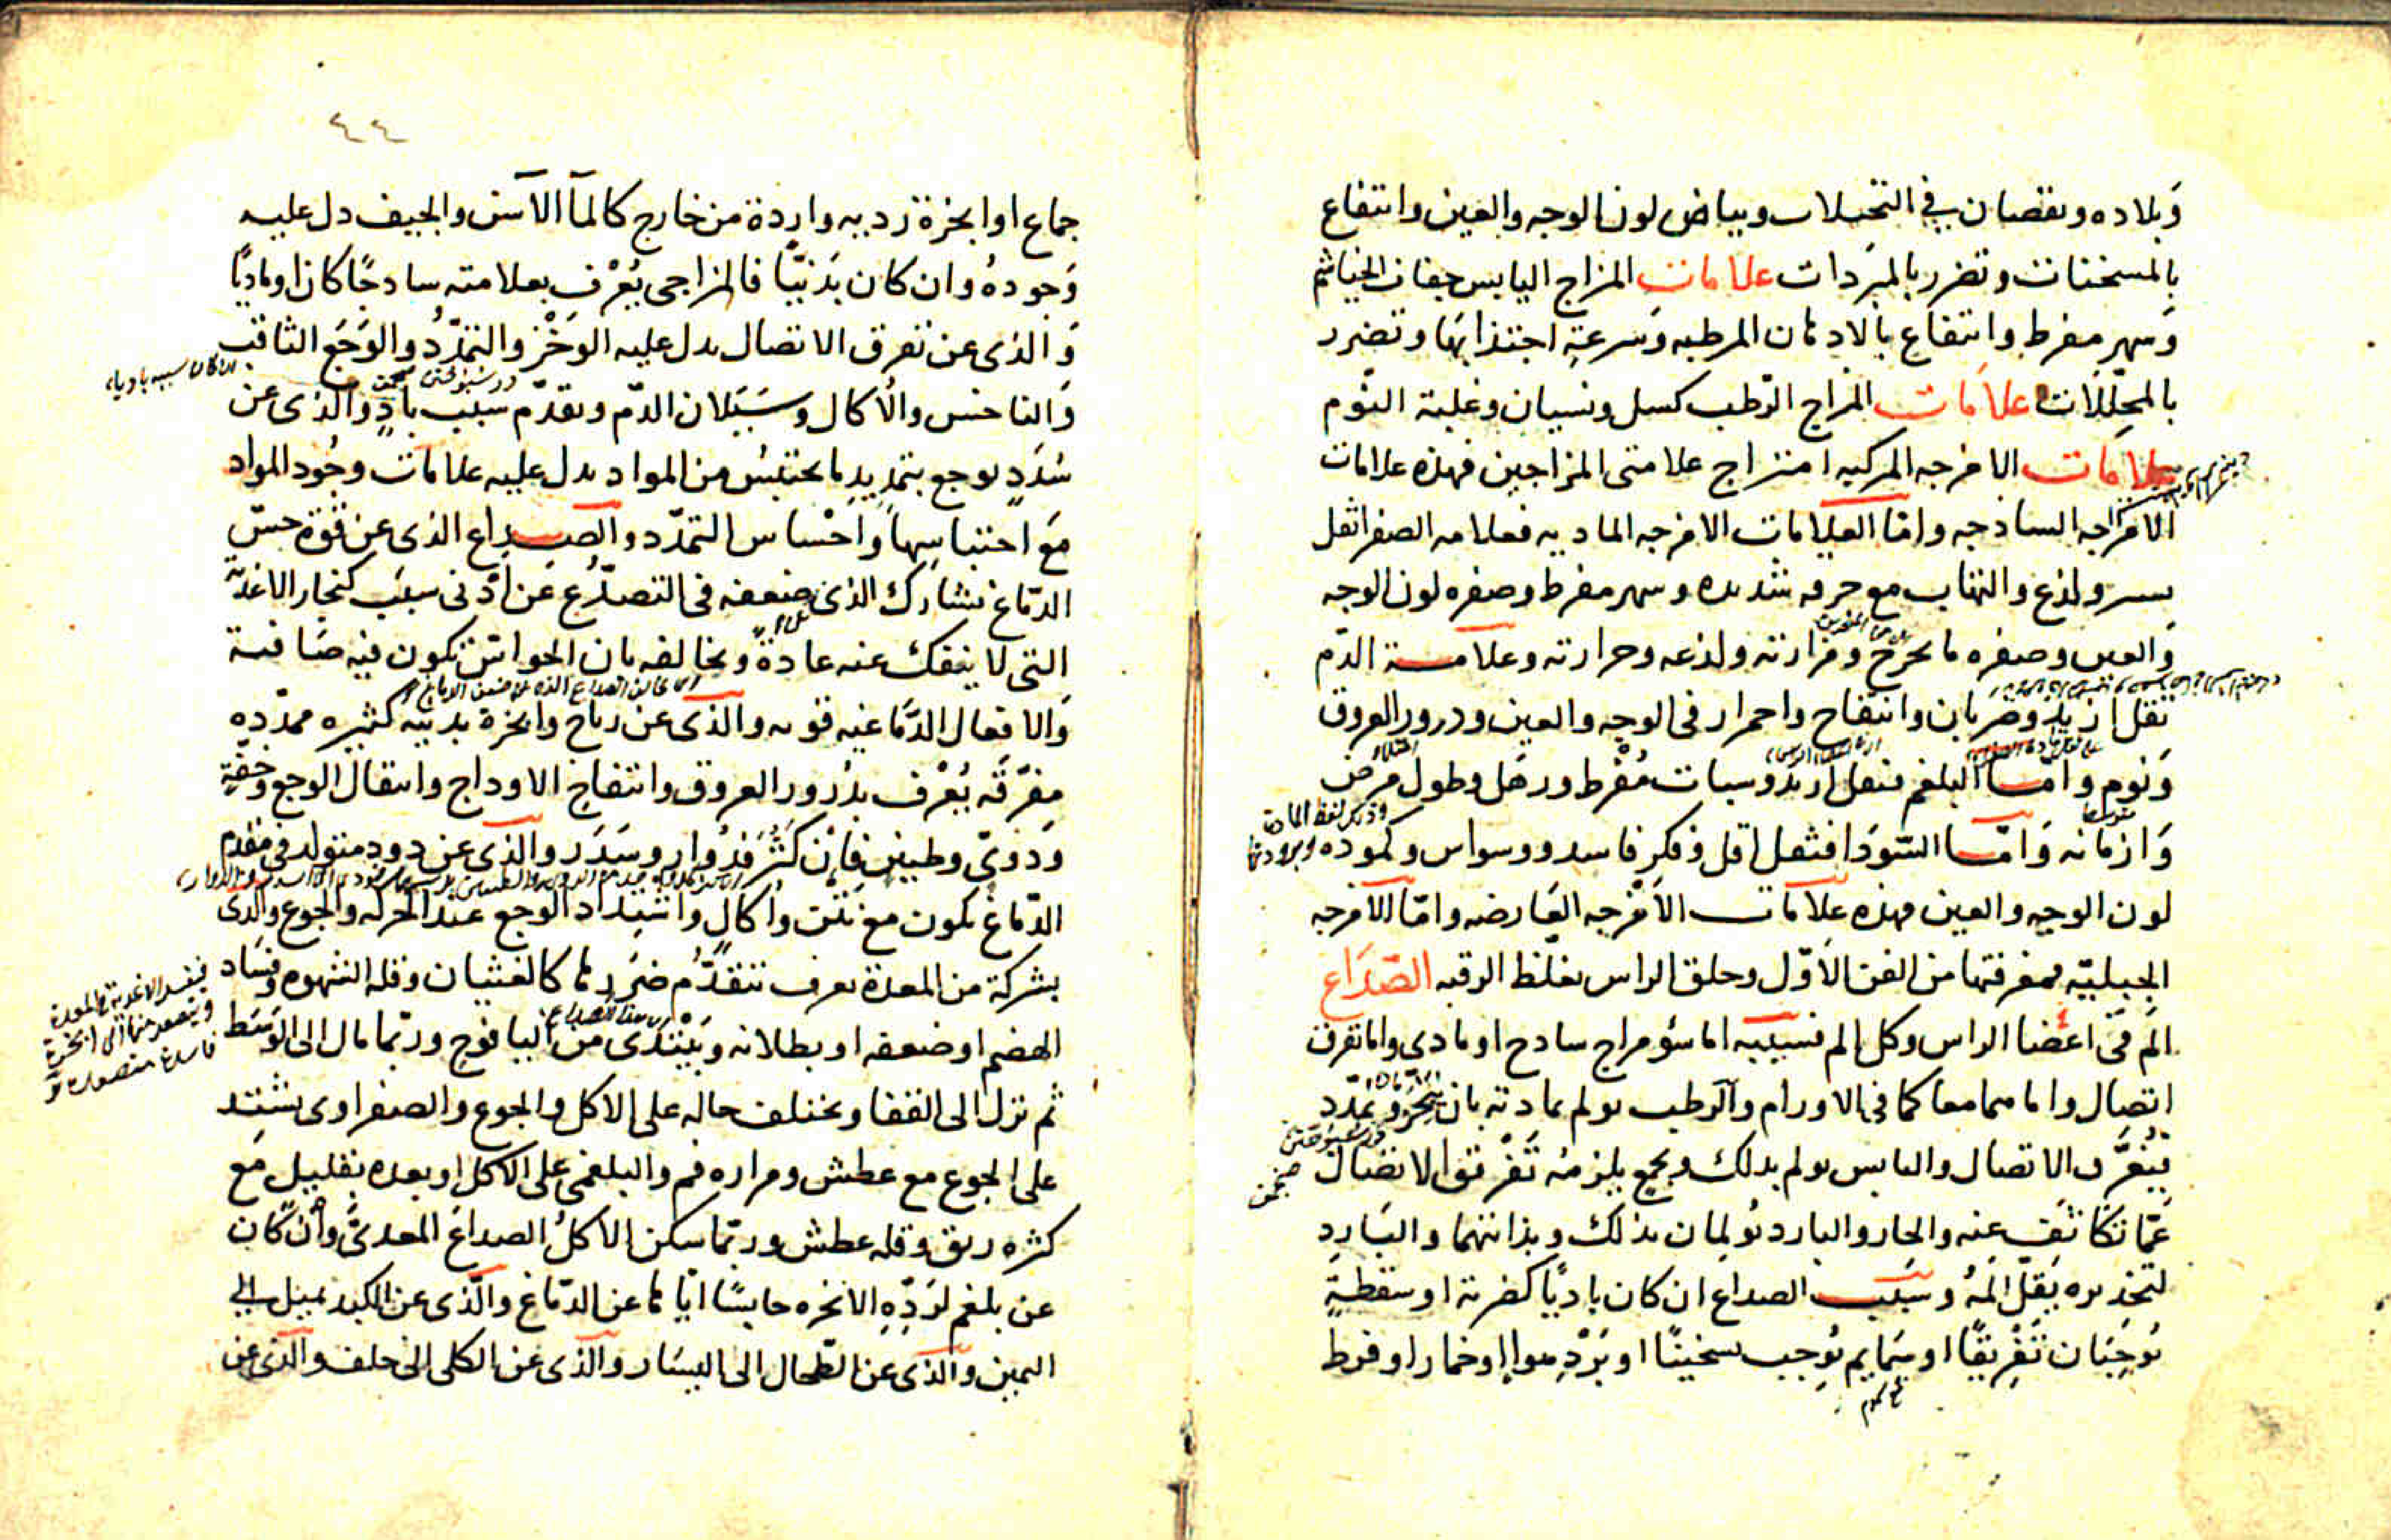 وبلاده ونقصان في التخيلات وبياض لون الوجه والعين وانتفاع
بالمسخنات وتضرر بالمبردات علامات المزاج اليابس جفاف الخياشم
وسهر مفرط وانتفاع بالادهان المرطبه وسرعة اجتذابها وتضرر
بالمحللات علامات المزاج الرطب كسل ونسيان وغلبة النوم
علامات الامزجه المركبه امتزاج علامتى المزاجين فهذه علامات
الامزاجه الساذجه واما العلامات الامزجه الماديه فعلامه الصفرا ثقل
يسير ولذع والتهاب مع حرقه شديده وسهر مفرط وصفره لون الوجه
والعين وصفره ما يخرج ومرارته ولذعه وحرارته وعلامة الدم
ثقل ازيد وضربان وانتفاخ واحمرار فى الوجه والعين ودرور العروق
ونوم واما البلغم فثقل ازيد وسبات مفرط ورهل وطول مرض
وازمانه واما السودا فثقل اقل وفكر فاسد ووسواس وكموده
لون الوجه والعين فهذه علامات الامزجه العارضه واما الامزجه
الجبليه فمعرفتها من الفن الاول وحلق الراس بغلظ الرقبه الصداع
الم فى اعضا الراس وكل الم فسببه اما سؤ مزاج سادج او مادى واما تفرق
اتصال واما هما معا كما فى الاورام والرطب يولم بمادته بان يتبخر ويمدد
فيتفرق الاتصال واليابس يولم بذلك وبجمع يلزمه تفرق الاتصال
عما تكاثف عنه والحار والبارد يولمان بذلك وبذاتهما والبارد
لتخديره يقل المه وسبب الصداع ان كان باديا كضربة او سقطة
يوجبان تفريقا او سمايم يوجب تسخينا او برد هوا او خمار او فرط
٤٤
جماع او ابخرة رديه واردة من خارج كالمآ الاسن والجيف دل عليه
وجوده وان كان بدنيا فالمزاجى يعرف بعلامته سادجا كان او ماديا
والذى عن تفرق الاتصال يدل عليه الوخز والتمدد والوجع الثاقب
والناخس والاكال وسيلان الدم وتقدم سبب باد والذى عن
سدد يوجع بتمديد ما يحتبس من المواد يدل عليه علامات وجود المواد
مع احتباسها واحساس التمدد والصداع الذى عن قوة حس
الدماغ يشارك الذى ضعفه فى التصدع عن ادنى سبب كبخار الاغذية
التى لا ينفك عنه عادة ويخالفه بان الحواس تكون فيه صافية
والافعال الدماغيه قويه والذى عن رياح وابخرة بدنيه كثيره ممدده
مفرقه يعرف بدرور العروق وانتفاخ الاوداج وانتقال الوجع وخفة
ودوى وطنين فان كثر فدوار وسدر والذى عن دود متولد فى مقدم
الدماغ يكون مع نتن واكال واشتداد الوجع عند الحركه والجوع والذى
بشركة من المعدة يعرف بتقدم ضررها كالغثيان وقله الشهوه وفساد
الهضم او ضعفه او بطلانه ويبتدى من اليافوخ وربما مال الى الوسط
ثم نزل الى القفا ويختلف حاله على الاكل والجوع والصفراوى يشتد
على الجوع مع عطش ومراره فم والبلغمى على الاكل او بعده بقليل مع
كثره ريق وقله عطش وربما سكن الاكل الصداع المعدى وان كان
عن بلغم لرده الابخره حابسا اياها عن الدماغ والذى عن الكبد يميل الى
اليمين والذى عن الطحال الى اليسار والذى عن الكلى الى خلف والذى عن